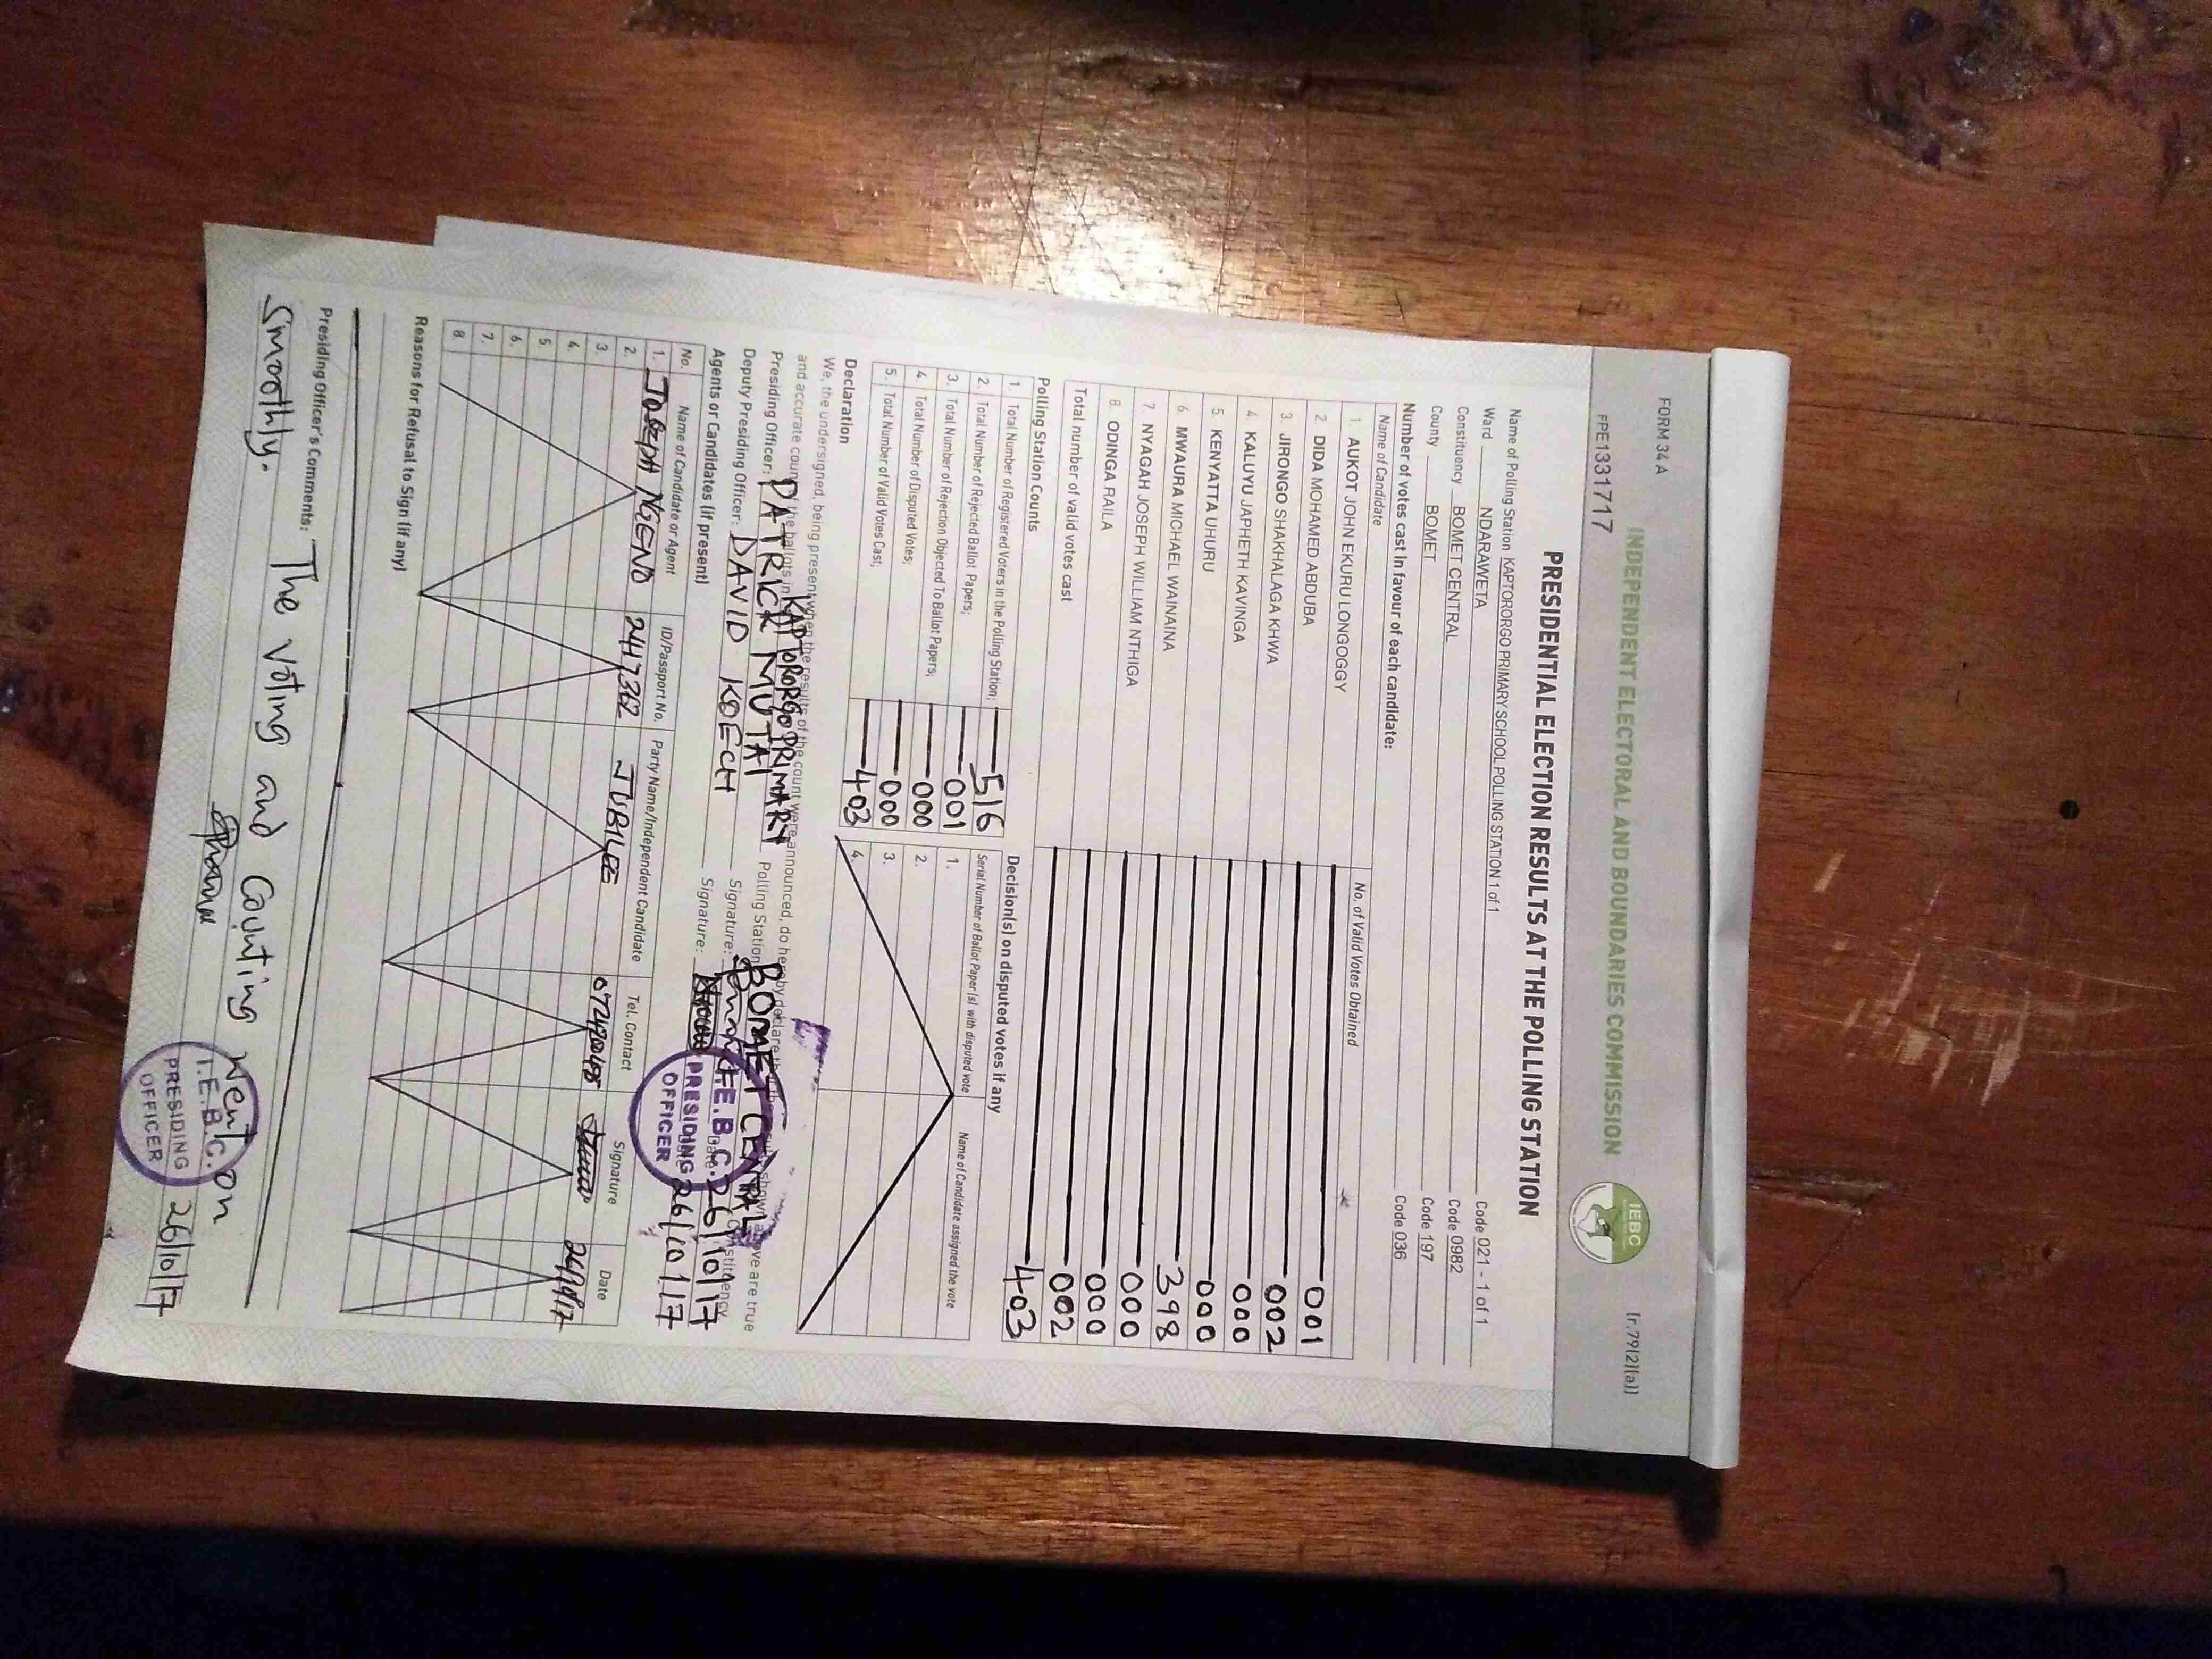 FORM 34 A
(r.79(2)(a))
INDEPENDENT ELECTORAL AND BOUNDARIES COMMISSION
IEBC
PE1331717
PRESIDENTIAL ELECTION RESULTS AT THE POLLING STATION
Name of Polling Station KAPTORORGO PRIMARY SCHOOL POLLING STATION 1 of 1 Code 021 - 1 of 1
Ward NDARAWETA Code 0982
Constituency BOMET CENTRAL Code 197
County BOMET Code 036
Number of votes cast in favour of each candidate:
Name of Candidate No. of Valid Votes Obtained
1. AUKOT JOHN EKURU LONGOGGY 001
2. DIDA MOHAMED ABDUBA 002
3. JIRONGO SHAKHALAGA KHWA 000
4. KALUYU JAPHETH KAVINGA 000
5. KENYATTA UHURU 398
6. MWAURA MICHAEL WAINAINA 000
7. NYAGAH JOSEPH WILLIAM NTHIGA 000
8. ODINGA RAILA 002
Total number of valid votes cast 403
Polling Station Counts
1. Total Number of Registered Voters in the Polling Station; 516
2. Total Number of Rejected Ballot Papers; 001
3. Total Number of Rejection Objected To Ballot Papers; 000
4. Total Number of Disputed Votes; 000
5. Total Number of Valid Votes Cast; 403
Decision(s) on disputed votes if any
Serial Number of Ballot Paper (s) with disputed vote Name of Candidate assigned the vote
1.
2.
3.
4.
Declaration
We, the undersigned, being present when the results of the count were announced, do hereby declare that the results shown above are true
and accurate count of the ballots in KAPTORORGO PRIMARY Polling Station BOMET CENTRAL Constituency
Presiding Officer: PATRICK MUTAI Signature: Date 26/10/17
Deputy Presiding Officer: DAVID KOECH Signature: 26/10/17
I.E.B.C.
PRESIDING
OFFICER
Agents or Candidates (if present)
No. Name of Candidate or Agent ID/Passport No. Party Name/Independent Candidate Tel. Contact Signature Date
1. NGENO JUBILEE
2.
3.
4.
5.
6.
7.
8.
Reasons for Refusal to Sign (if any)
Presiding Officer's Comments: The voting and counting went on
smoothly.
I.E.B.C.
PRESIDING
OFFICER
26/10/17